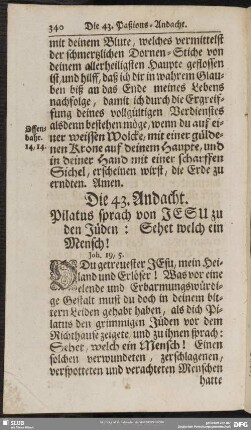 340 Die 43. Paßions-Andacht.
mit deinem Blute, welches vermittelst
der schmertzlichen Dornen-Stiche von
deinem allerheiligsten Haupte geflossen
ist, und hilff, daß ich dir in wahrem Glau-
ben biß an das Ende meines Lebens
nachfolge, damit ich durch die Ergreif-
fung deines vollgültigen Verdienstes
alsdenn bestehen möge, wenn du auf ei-
Offenb. ner weissen Wolcke, mit einer gülde-
14, 14. nen Krone auf deinem Haupte, und
in deiner Hand mit einer scharffen
Sichel, erscheinen wirst, die Erde zu
erndten. Amen.
Die 43. Andacht.
Pilatus sprach von JESU zu
den Jüden: Sehet welch ein
Mensch!
Joh. 19, 5.
DU getreuester JEsu, mein Hei-
land und Erlöser! Was vor eine
elende und Erbarmungswürdi-
ge Gestalt must du doch in deinem bit-
tern Leiden gehabt haben, als dich Pi-
latus den grimmigen Jüden vor dem
Richthause zeigete, und zu ihnen sprach:
Sehet, welch ein Mensch! Einen
solchen verwundeten, zerschlagenen,
verspotteten und verachteten Menschen
hatte
SLUB
DFG